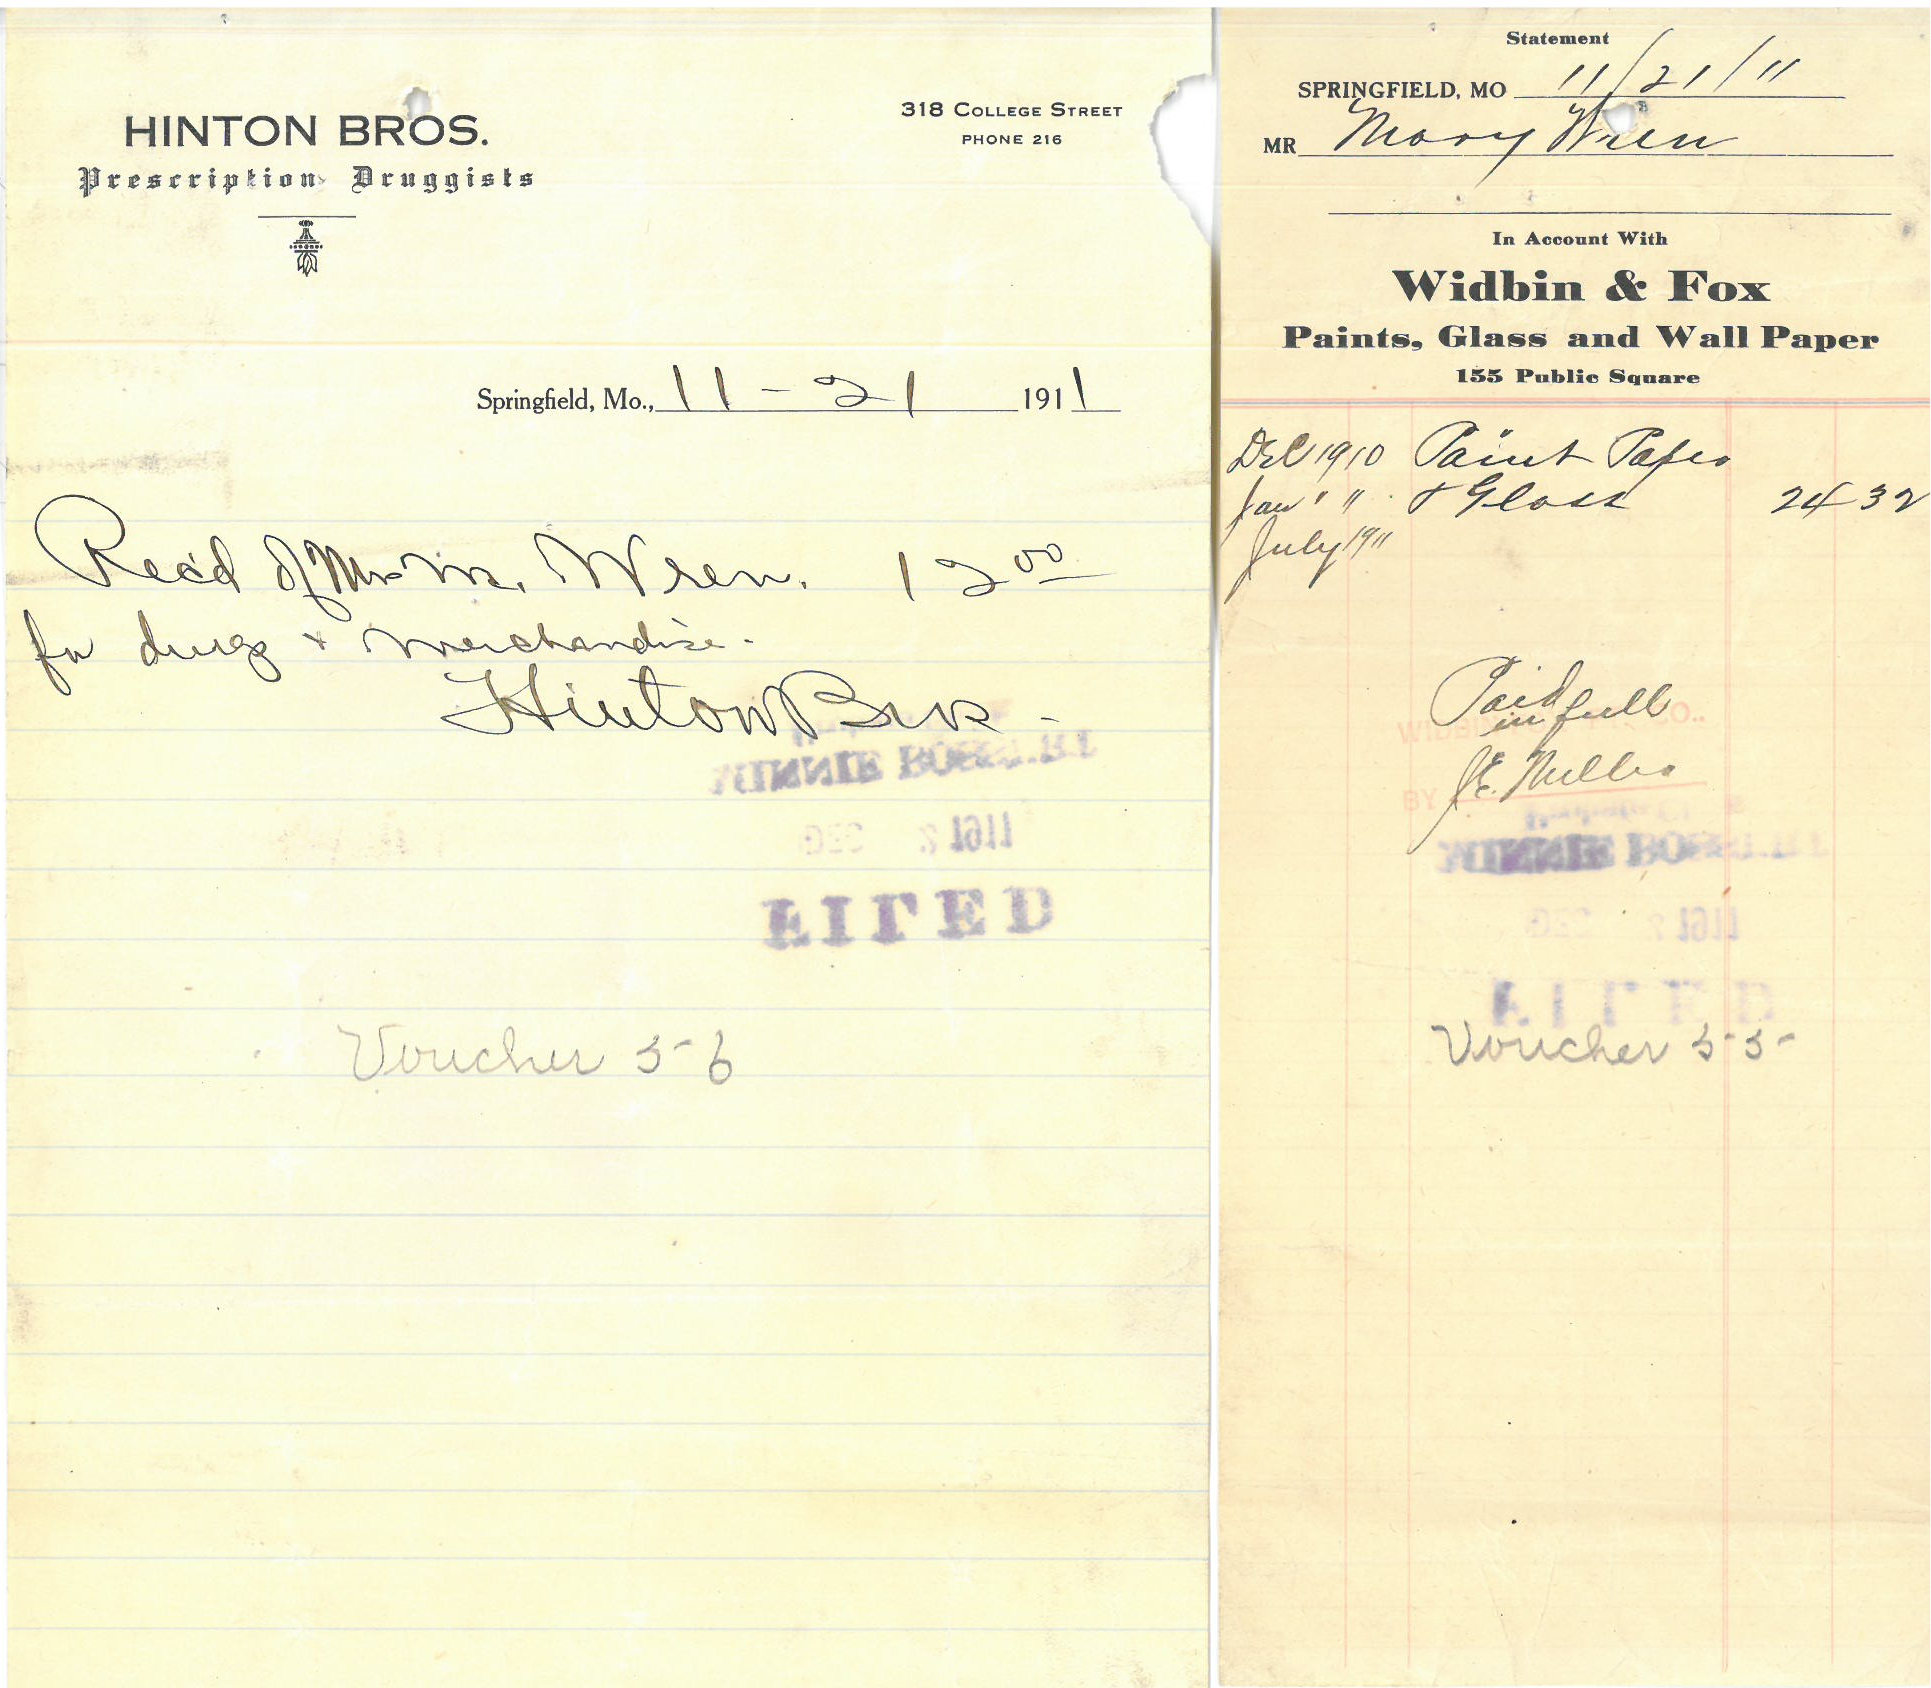 HINTON BROS.
Prescription Druggists
318 COLLEGE STREET
PHONE 216
Springfield, Mo., 11 - 21 1911
Rec'd of Mrs M. Wren. 12 00
for drugs + merchandise.
Hinton Bros -
MINNIE
DEC 2 1911
FILED
Voucher 56
Statement
SPRINGFIELD, MO 11/21/11
MR Mary Wren
In Account With
Widbin & Fox
Paints, Glass and Wall Paper
155 Public Square
Dec 1910 Paint Paper
Jan " " & Glass 24 32
July 1911
Paid
in full
WIDBIN CO.
J.E. Miller
BY
MINNIE
DEC 2 1911
FILED
Voucher 55